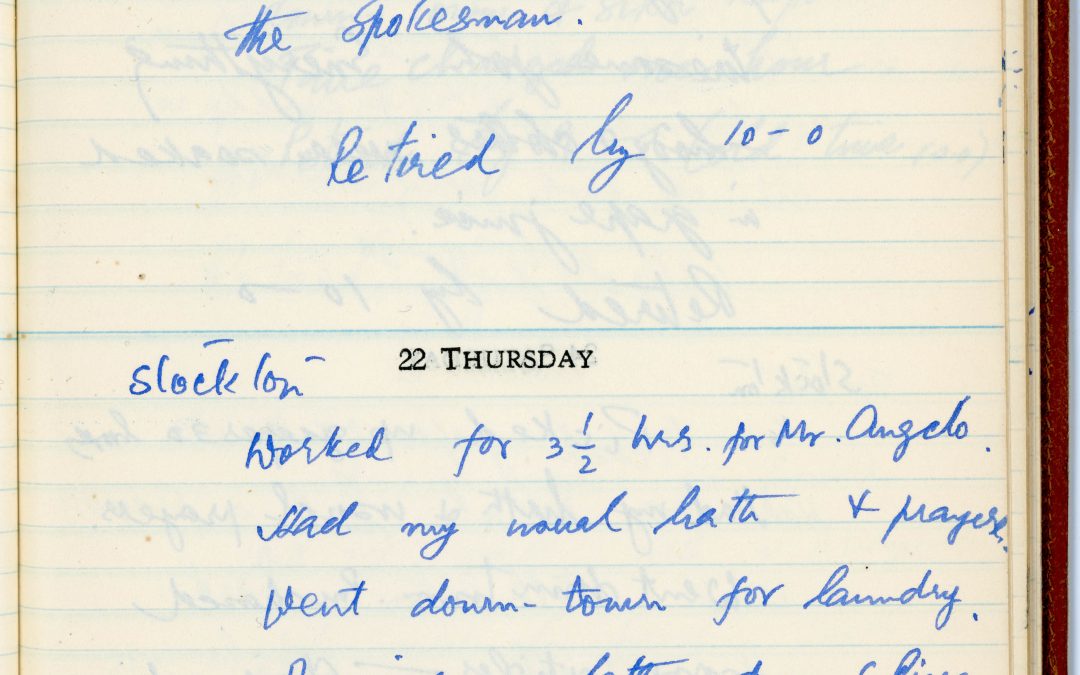 the Spokesman.
Retired by 10-0
22 THURSDAY
Stockton
Worked for 3 1/2 hrs. for Mr. Angelo.
Had my usual bath & prayers.
Went down-town for laundry.